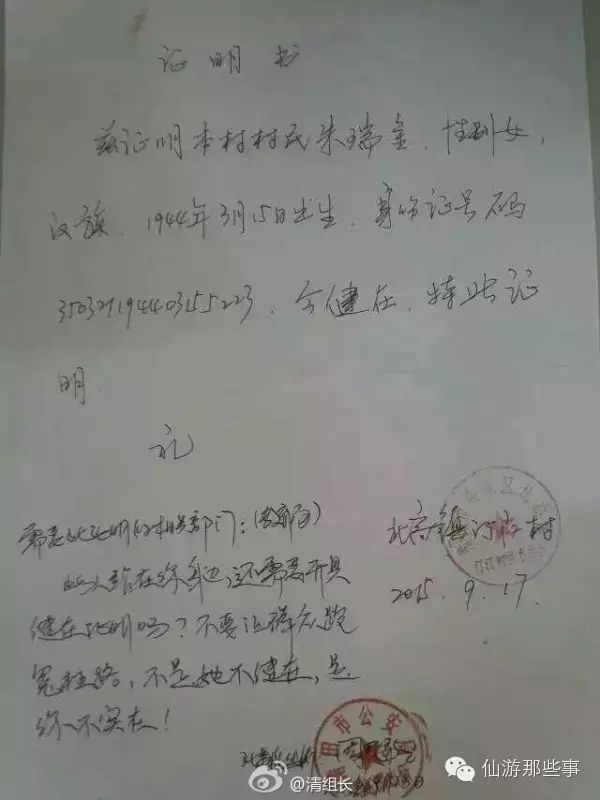 证明书
兹证明本村村民朱瑞金，性别女，
汉族，1944年3月15日出生，身份证号码
350321194403155223，今健在，特此证
明。
需要此证明的相关部门：
此人站在你身边，还需要开具
健在证明吗？不要让群众跑
冤枉路，不是她不健在，是
你不实在！
北高镇汀江村
2015.9.17.
市公安
@清组长
仙游那些事